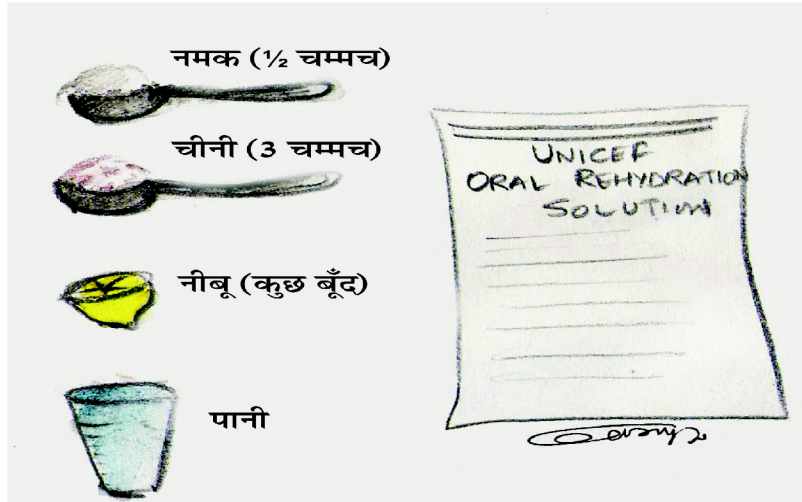 नमक (½ चम्मच)
चीनी (3 चम्मच)
नीबू (कुछ बूँद)
पानी
UNICEF
ORAL REHYDRATION
SOLUTION